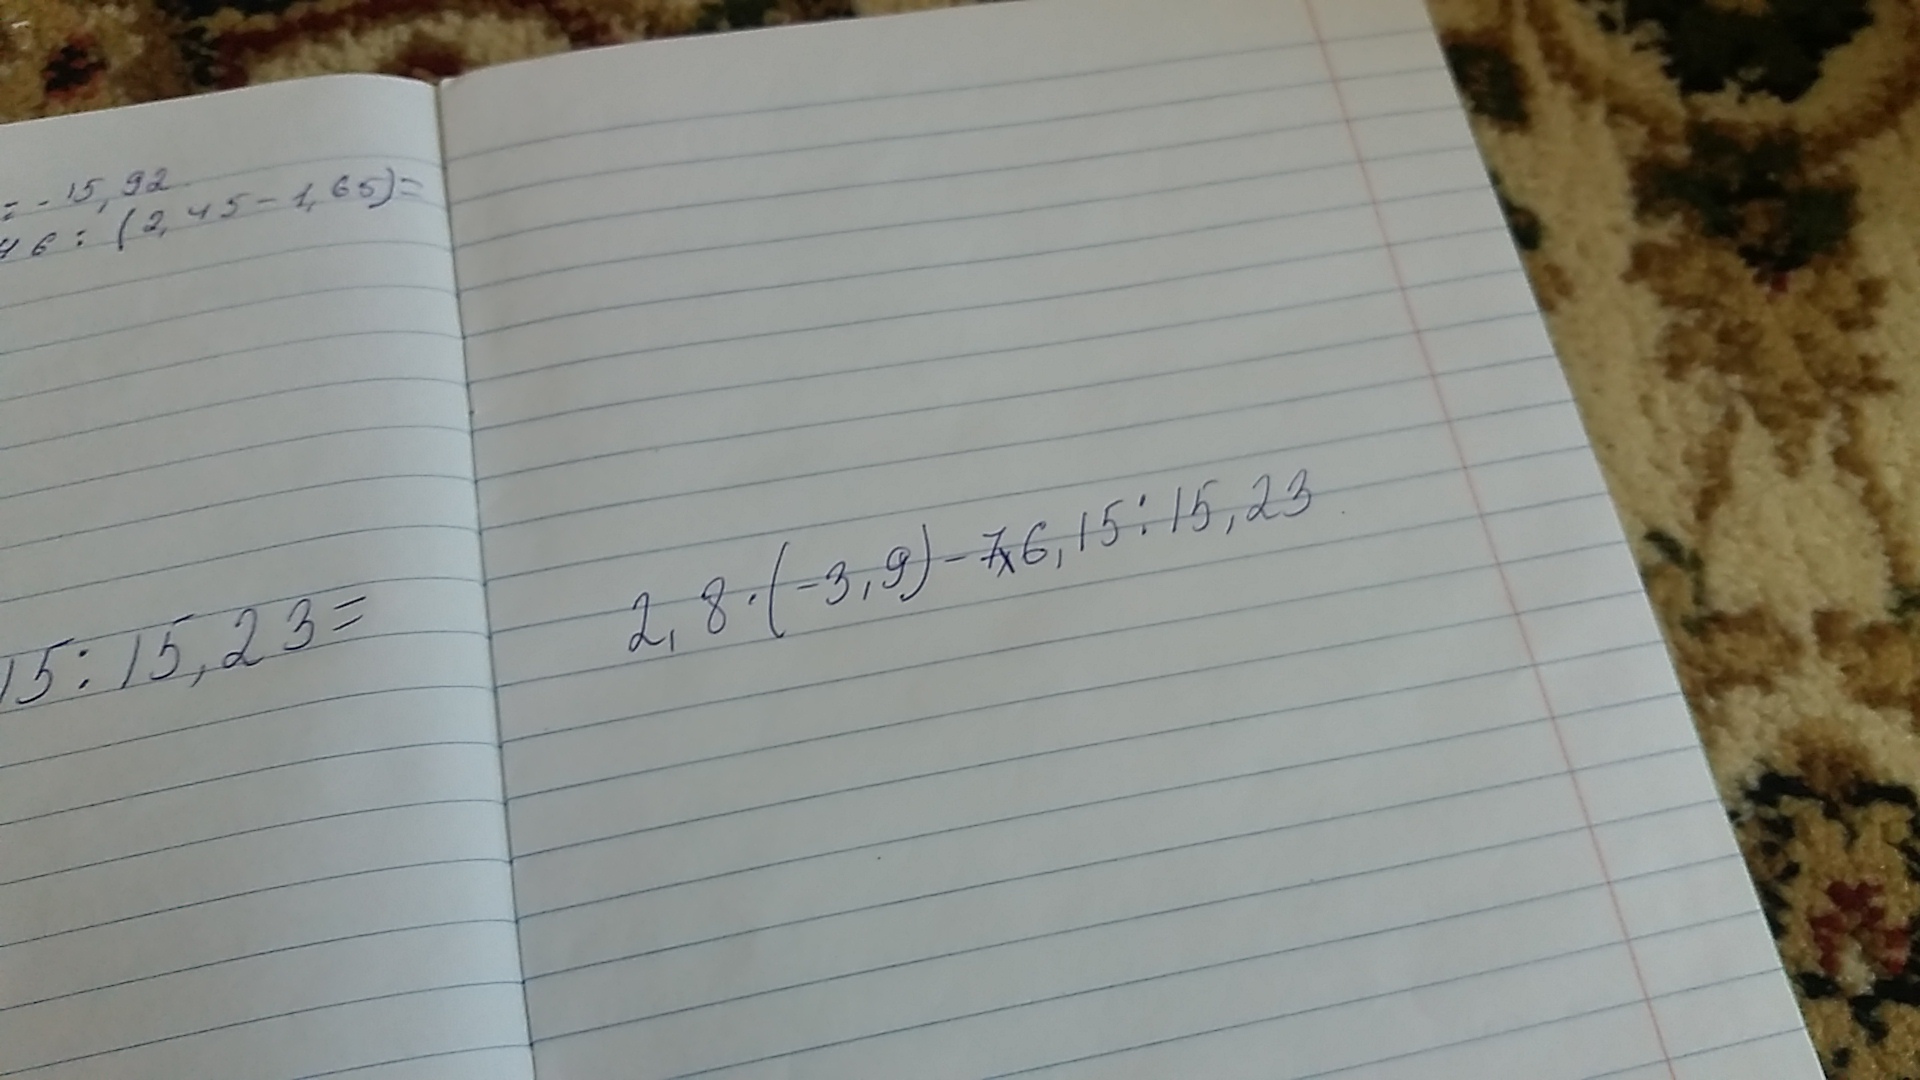 = - 15,92
46 : (2,45 - 1,65) =
15 : 15,23 =
2,8 · (-3,9) - 76,15 : 15,23